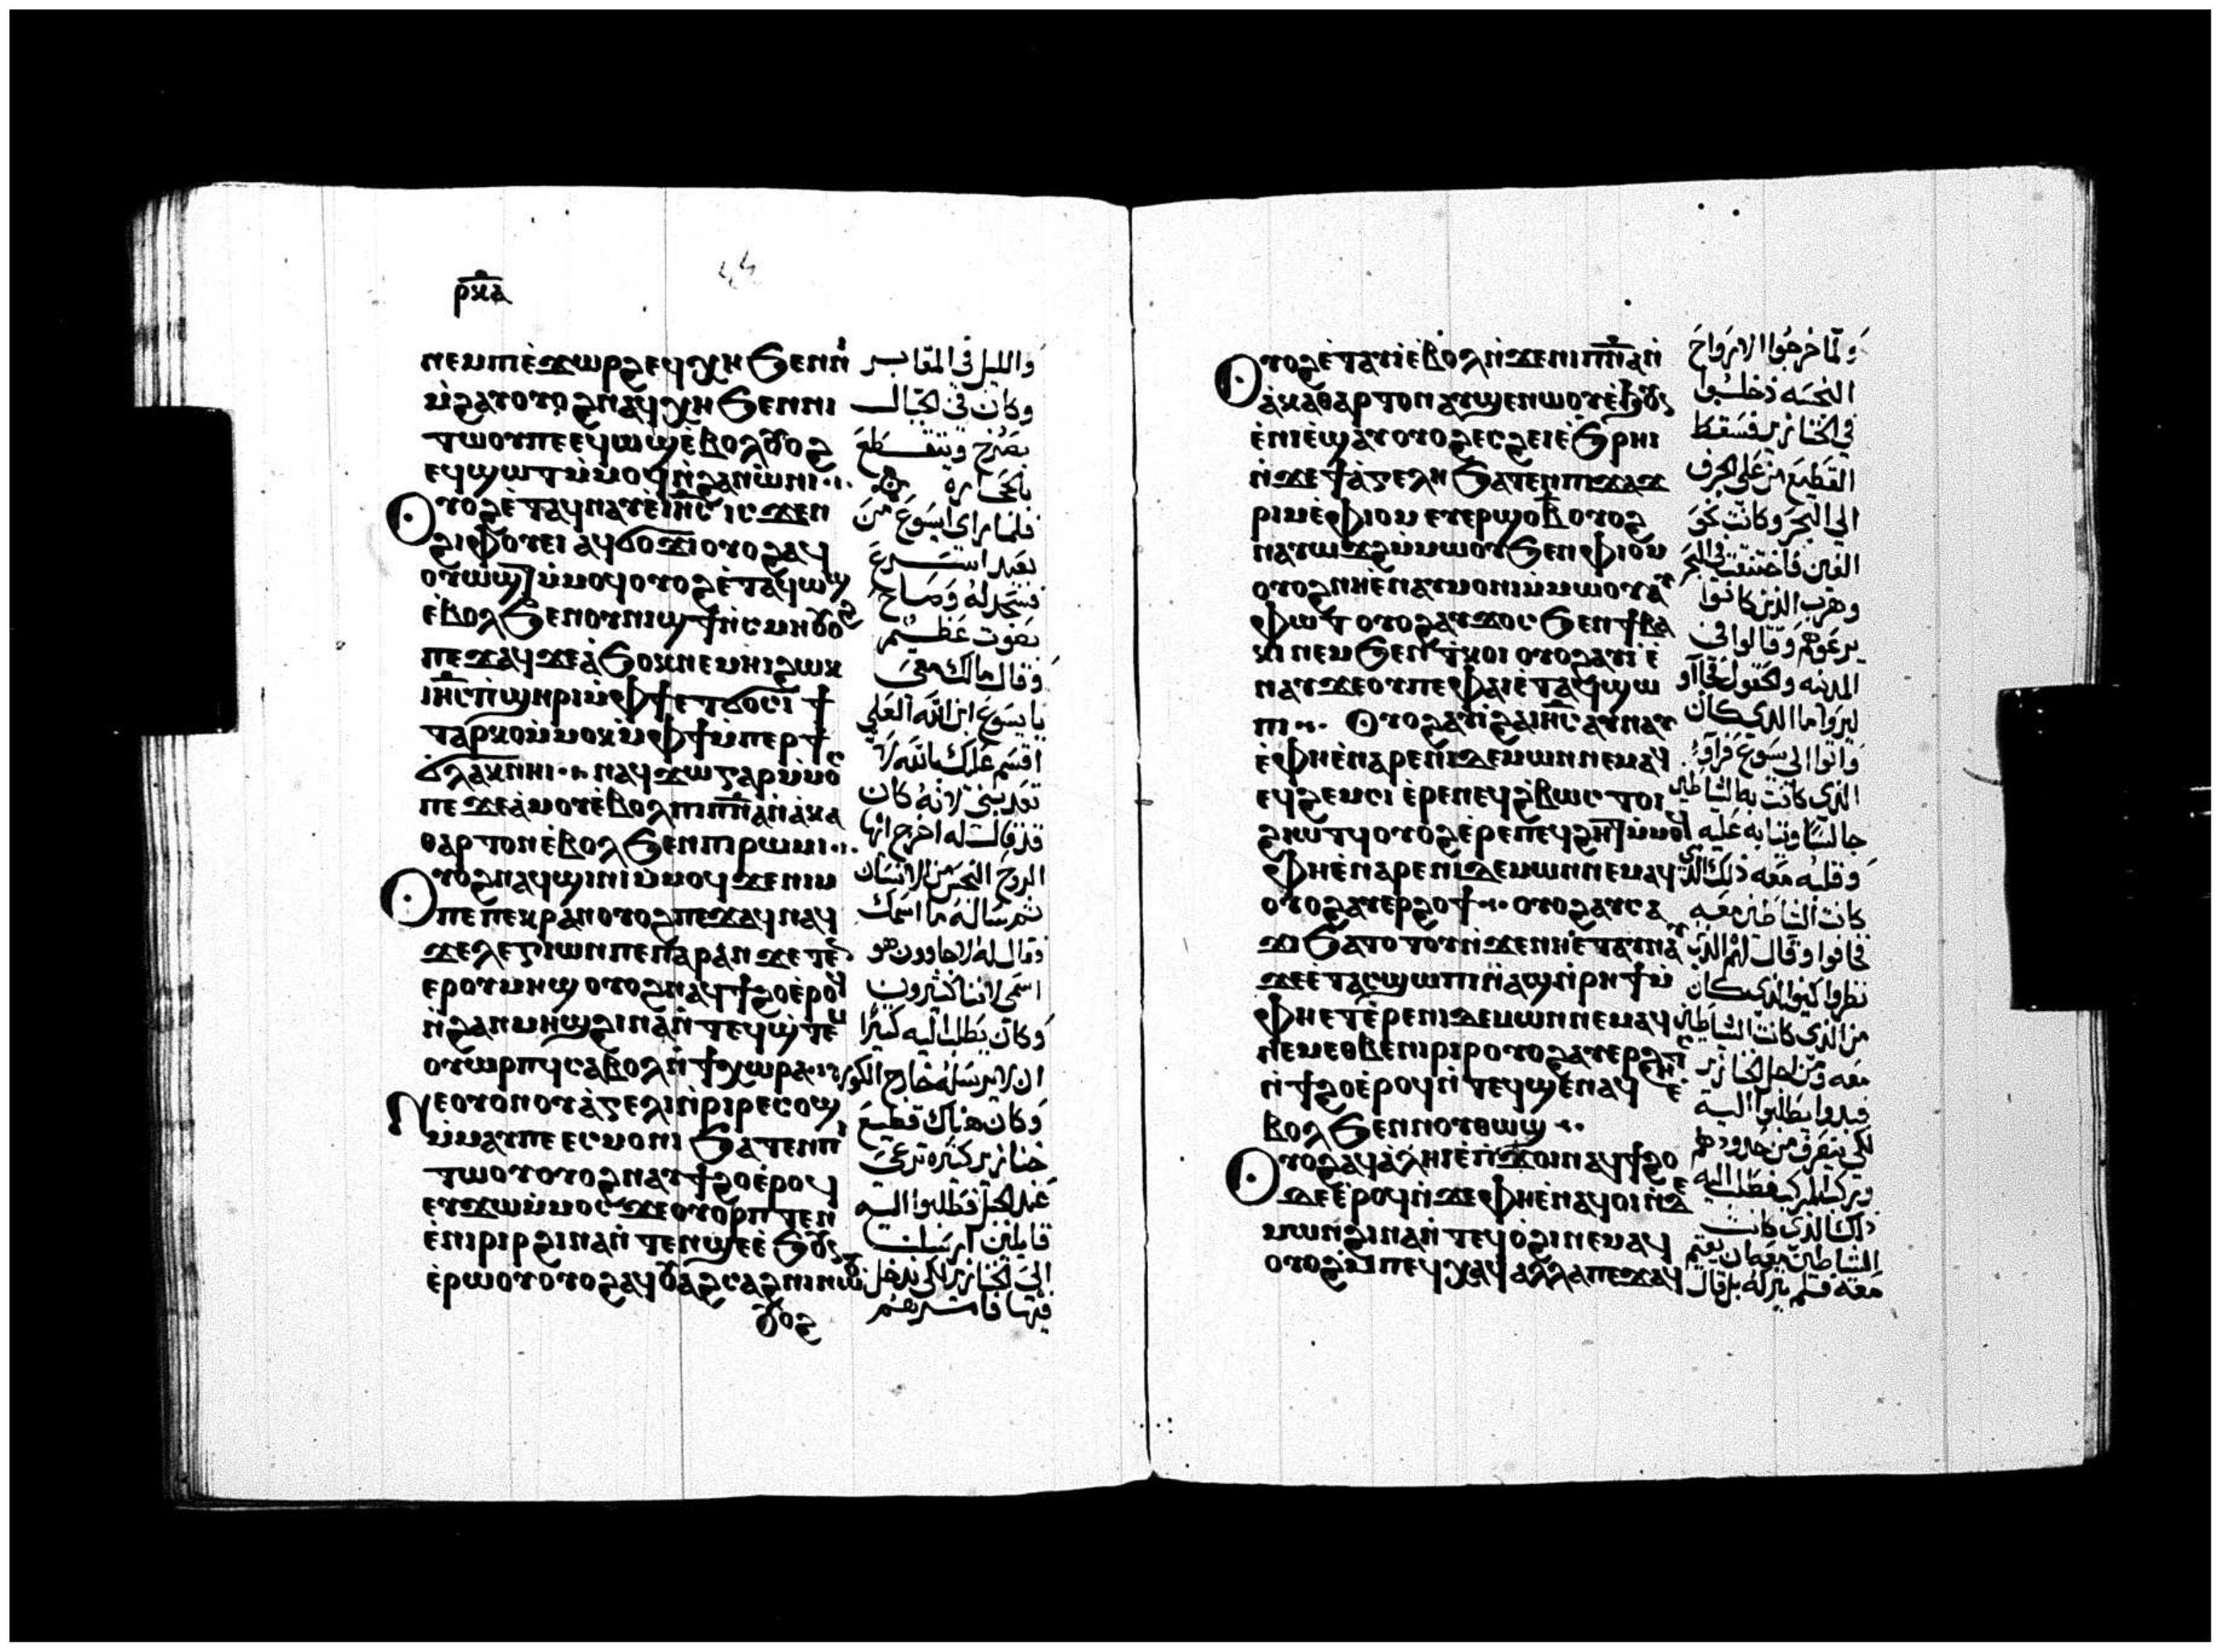 ⲣⲕⲁ
ⲛⲉⲙⲡⲓⲉ̀ϫⲱⲣϩⲉϥⲭⲏϧⲉⲛⲛⲓ
ⲙ̀ϩⲁⲩⲟⲩⲟϩⲛⲁϥⲭⲏϧⲉⲛⲛⲓ
ⲧⲱⲟⲩⲡⲉⲉϥⲱϣⲉⲃⲟⲗⲟⲩⲟϩ
ⲉϥϣⲱⲧⲙ̀ⲙⲟϥⲛ̀ϩⲁⲛⲱ̀ⲛⲓ
ⲟⲩⲟϩⲉ̀ⲧⲁϥⲛⲁⲩⲉ̀ⲓⲏ̅ⲥ̅ ⲓⲥϫⲉⲛ
ϩⲓⲫⲟⲩⲉⲓ ⲁϥϭⲟϫⲓⲟⲩⲟϩⲁϥ
ⲟⲩⲱϣⲧⲙ̀ⲙⲟϥⲟⲩⲟϩⲉ̀ⲧⲁϥⲱϣ
ⲉ̀ⲃⲟⲗϧⲉⲛⲟⲩⲛⲓϣϯⲛ̀ⲥⲙⲏⲟⲩⲟϩ
ⲡⲉϫⲁϥϫⲉⲁ̀ϧⲟⲕⲛⲉⲙⲏⲓϩⲱⲕ
ⲓⲏ̅ⲥ̅ⲡ̀ϣⲏⲣⲓⲙ̀ⲫϯⲉⲧϭⲟⲥⲓ ϯ
ⲧⲁⲣⲕⲟⲙ̀ⲙⲟⲕⲙ̀ⲫϯⲙ̀ⲡⲉⲣϯ
ϭⲗⲁⲕⲛⲏⲓ ⲛⲁϥϫⲱⲅⲁⲣⲙ̀ⲙⲟⲥ
ⲡⲉϫⲉⲁ̀ⲙⲟⲩⲉ̀ⲃⲟⲗⲡⲓⲡ̅ⲛ̅ⲁ̅ⲛ̀ⲁ̀ⲕⲁ
ⲑⲁⲣⲧⲟⲛⲉ̀ⲃⲟⲗϧⲉⲛⲡⲓⲣⲱⲙⲓ
ⲟⲩⲟϩⲛⲁϥϣⲓⲛⲓⲙ̀ⲙⲟϥϫⲉⲛⲓⲙ
ⲡⲉⲡⲉⲕⲣⲁⲛⲟⲩⲟϩⲡⲉϫⲁϥⲛⲁϥ
ϫⲉⲗⲉⲅⲓⲱⲛⲡⲉⲡⲁⲣⲁⲛϫⲉⲧⲉⲛ
ⲉⲣⲟⲩⲙⲏϣⲟⲩⲟϩⲛⲁϥϯϩⲟⲉ̀ⲣⲟϥ
ⲛ̀ϩⲁⲛⲙⲏϣϩⲓⲛⲁⲛ̀ⲧⲉϥϣ̀ⲧⲉⲙ
ⲟⲩⲱⲣⲡϥⲥⲁⲃⲟⲗⲛ̀ϯⲭⲱⲣⲁ
ⲛⲉⲟⲩⲟⲛⲟⲩⲁ̀ⲅⲉⲗⲓⲛ̀ⲣⲓⲣⲉϥⲟϣ
ⲙ̀ⲙⲁⲩⲡⲉⲉⲥⲙⲟⲛⲓ ϧⲁⲧⲉⲛⲡⲓ
ⲧⲱⲟⲩⲟⲩⲟϩⲛⲁⲩϯϩⲟⲉ̀ⲣⲟϥ
ⲉⲩϫⲱⲙ̀ⲙⲟⲥϫⲉⲟⲩⲟⲣⲡⲧⲉⲛ
ⲉ̀ⲛⲓⲣⲓⲣϩⲓⲛⲁⲛ̀ⲧⲉⲛϣⲉⲉ̀ϧⲟⲩⲛ
ⲉ̀ⲣⲱⲟⲩⲟⲩⲟϩⲁϥⲟⲩⲁϩⲥⲁϩⲛⲓⲛⲱⲟⲩ
ⲟⲩⲟϩ
والليل في المقابر
وكان في الجبال
يصرخ ويتقطع
بالحجاره
فلما راى ايسوع من
بعيد اسرع
فسجد له وصاح
بصوت عظيم
وقال مالك معى
يا يسوع ابن الله العلي
اقسم عليك بالله لا
تعذبنى لانه كان
قد قال له اخرج ايها
الروح النجس من الانسان
ثم سأله ما اسمك
فقال له لاجاوون هو
اسمى لاننا كثيرون
وكان يطلب اليه كثيرًا
ان لا يرسله خارج الكوره
وكان هناك قطيع
خنازير كثيره ترعى
عند الجبل فطلبوا اليه
قايلين ارسلنا
الى الخنازير لكى ندخل
فيها فامرهم
ⲟⲩⲟϩⲉ̀ⲧⲁⲩⲓ̀ⲉ̀ⲃⲟⲗⲛ̀ϫⲉⲛⲓⲡ̅ⲛ̅ⲁ̅ⲛ̀
ⲁ̀ⲕⲁⲑⲁⲣⲧⲟⲛⲁⲩϣⲉⲛⲱⲟⲩⲉ̀ϧⲟⲩⲛ
ⲉ̀ⲛⲓⲉ̀ϣⲁⲩⲟⲩⲟϩⲉⲥϩⲉⲓⲉ̀ϧⲣⲏⲓ
ⲛ̀ϫⲉϯⲁ̀ⲅⲉⲗⲏ ϧⲁⲧⲉⲛⲡⲓϫⲁϫ
ⲣⲓⲙⲉ̀ⲫⲓⲟⲙ ⲉⲩⲉⲣϣⲟⲃⲟⲩⲟϩ
ⲛⲁⲩⲱϫϩⲙ̀ⲙⲱⲟⲩϧⲉⲛⲫⲓⲟⲙ
ⲟⲩⲟϩⲛⲏⲉ̀ⲛⲁⲩⲙⲟⲛⲓⲙ̀ⲙⲱⲟⲩⲁⲩ
ⲫⲱⲧ ⲟⲩⲟϩⲁⲩϫⲟⲥ ϧⲉⲛϯⲃⲁ
ⲕⲓ ⲛⲉⲙϧⲉⲛⲧ̀ⲕⲟⲓ ⲟⲩⲟϩⲁⲩⲓ̀ ⲉ̀
ⲛⲁⲩϫⲉⲟⲩⲡⲉⲫⲁⲓⲉ̀ⲧⲁϥϣⲱ
ⲡⲓ ⲟⲩⲟϩⲁⲩⲓ̀ϩⲁⲓⲏ̅ⲥ̅ ⲁⲩⲛⲁⲩ
ⲉ̀ⲫⲏⲉ̀ⲛⲁⲣⲉⲛⲓⲇⲉⲙⲱⲛⲛⲉⲙⲁϥ
ⲉϥϩⲉⲙⲥⲓ ⲉ̀ⲣⲉⲛⲉϥϩ̀ⲃⲱⲥ ⲧⲟⲓ
ϩⲓⲱⲧϥⲟⲩⲟϩⲉ̀ⲣⲉⲡⲉϥϩⲏⲧⲙ̀ⲙⲟϥ
ⲫⲏⲉ̀ⲛⲁⲣⲉⲛⲓⲇⲉⲙⲱⲛⲛⲉⲙⲁϥ
ⲟⲩⲟϩⲁⲩⲉⲣϩⲟϯ ⲟⲩⲟϩⲁⲩⲥⲁ
ϫⲓ ϧⲁⲧⲟⲧⲟⲩⲛ̀ϫⲉⲛⲏⲉ̀ⲧⲁⲩⲛⲁⲩ
ϫⲉⲉ̀ⲧⲁⲥϣⲱⲡⲓⲛ̀ⲁϣⲛ̀ⲣⲏϯⲙ̀
ⲫⲏⲉⲧⲉ̀ⲣⲉⲛⲓⲇⲉⲙⲱⲛⲛⲉⲙⲁϥ
ⲛⲉⲙⲉⲑⲃⲉⲛⲓⲣⲓⲣⲟⲩⲟϩⲁⲩⲉⲣϩⲏⲧⲥ
ⲛ̀ϯϩⲟⲉ̀ⲣⲟϥⲛ̀ⲧⲉϥϣⲉⲛⲁϥ ⲉ̀
ⲃⲟⲗϧⲉⲛⲛⲟⲩⲑⲱϣ
ⲟⲩⲟϩⲁϥⲁ̀ⲗⲏⲓⲉ̀ⲡ̀ϫⲟⲓⲛⲁϥϯϩⲟ
ⲇⲉⲉ̀ⲣⲟϥⲛ̀ϫⲉⲫⲏⲉ̀ⲛⲁϥⲟⲓⲛ̀ⲇⲉ
ⲙⲱⲛϩⲓⲛⲁⲛ̀ⲧⲉϥⲟ̀ϩⲓⲛⲉⲙⲁϥ
ⲟⲩⲟϩⲙ̀ⲡⲉϥⲭⲁϥ ⲁⲗⲗⲁⲡⲉϫⲁϥ
ولما خرجوا الارواح
النجسه دخلوا
في الخنازير فسقط
القطيع من على الجرف
الى البحر وكانت نحو
الفين فاختنقت في البحر
وهرب الذين كانوا
يرعوهم وقالوا في
المدينه والحقول فجاآو
ليروا ما الذى كان
واتوا الى يسوع فرآوا
الذى كانت به الشاطين
جالسًا وثيابه عليه
وقلبه معه ذلك الذى
كانت الشاطين معه
فخافوا وقال لهم الذين
نظروا كيف الذى كان
من الذى كانت الشاطين
معه ومن اجل الخنازير
فبدوا يطلبوا اليه
لكى ينصرف من حدودهم
وركب المركب فطلب اليه
ذاك الذى كانت
الشاطين معه ان يقيم
معه فلم يتركه بل قال